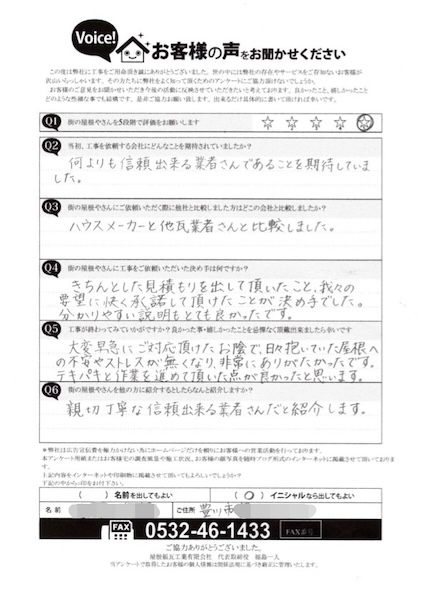 Voice!
お客様の声をお聞かせください
この度は弊社に工事をご用命頂き誠にありがとうございました。世の中には弊社の存在やサービスをご存知ないお客様が
沢山いらっしゃいます。その方たちに弊社をよく知って頂くためのアンケートにご協力頂けないでしょうか。
お客様のご意見をお聞かせいただき今後の活動に反映させていただきたいと考えております。良かったこと、嬉しかったこと
どのような些細な事でも結構です。是非ご協力お願い致します。出来るだけ具体的に書いて頂ければ幸いです。
Q1 街の屋根やさんを5段階で評価をお願いします ☆ ☆ ☆ ☆ ☆
Q2 当初、工事を依頼する会社にどんなことを期待されていましたか?
何よりも信頼出来る業者さんであることを期待していま
した。
Q3 街の屋根やさんにご依頼いただく際に他社と比較しました方はどこの会社と比較しましたか?
ハウスメーカーと他瓦業者さんと比較しました。
Q4 街の屋根やさんに工事をご依頼いただいた決め手は何ですか?
きちんとした見積もりを出して頂いたこと、我々の
要望に快く承諾して頂けたことが決め手でした。
分かりやすい説明もとても良かったです。
Q5 工事が終わってみていかがですか?良かった事・嬉しかったことを忌憚なく頂戴出来ましたら幸いです
大変早急にご対応頂けたお陰で、日々抱いていた屋根へ
の不安やストレスが無くなり、非常にありがたかったです。
テキパキと作業を進めて頂いた点が良かったと思います。
Q6 街の屋根やさんを他の方に紹介するとしたらなんと紹介しますか?
親切丁寧な信頼出来る業者さんだと紹介します。
*弊社は広告宣伝費を極力かけない為にホームページだけを頼りにお客様への営業活動を行っております。
本アンケート用紙またはお客様宅の調査風景や施工状況、お客様の顔写真を随時ブログ形式のインターネットに掲載させて頂いております。
上記内容をインターネットや印刷物に掲載させて頂いてもよろしいでしょうか?
下記のやから○印をお付け下さい。
( ) 名前を出してもよい ( ○ ) イニシャルなら出してもよい
名前 ご住所 豊川市
FAX 0532-46-1433 FAX番号
ご協力ありがとうございました。
屋根福瓦工業有限会社 代表取締役 福島一人
当アンケートで取得したお客様の個人情報は関係法規に基づき厳正に管理いたします。